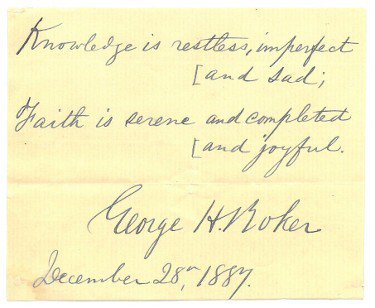 Knowledge is restless, imperfect
[and sad;
Faith is serene and completed
[and joyful.
George H. Boker
December 28th, 1887.